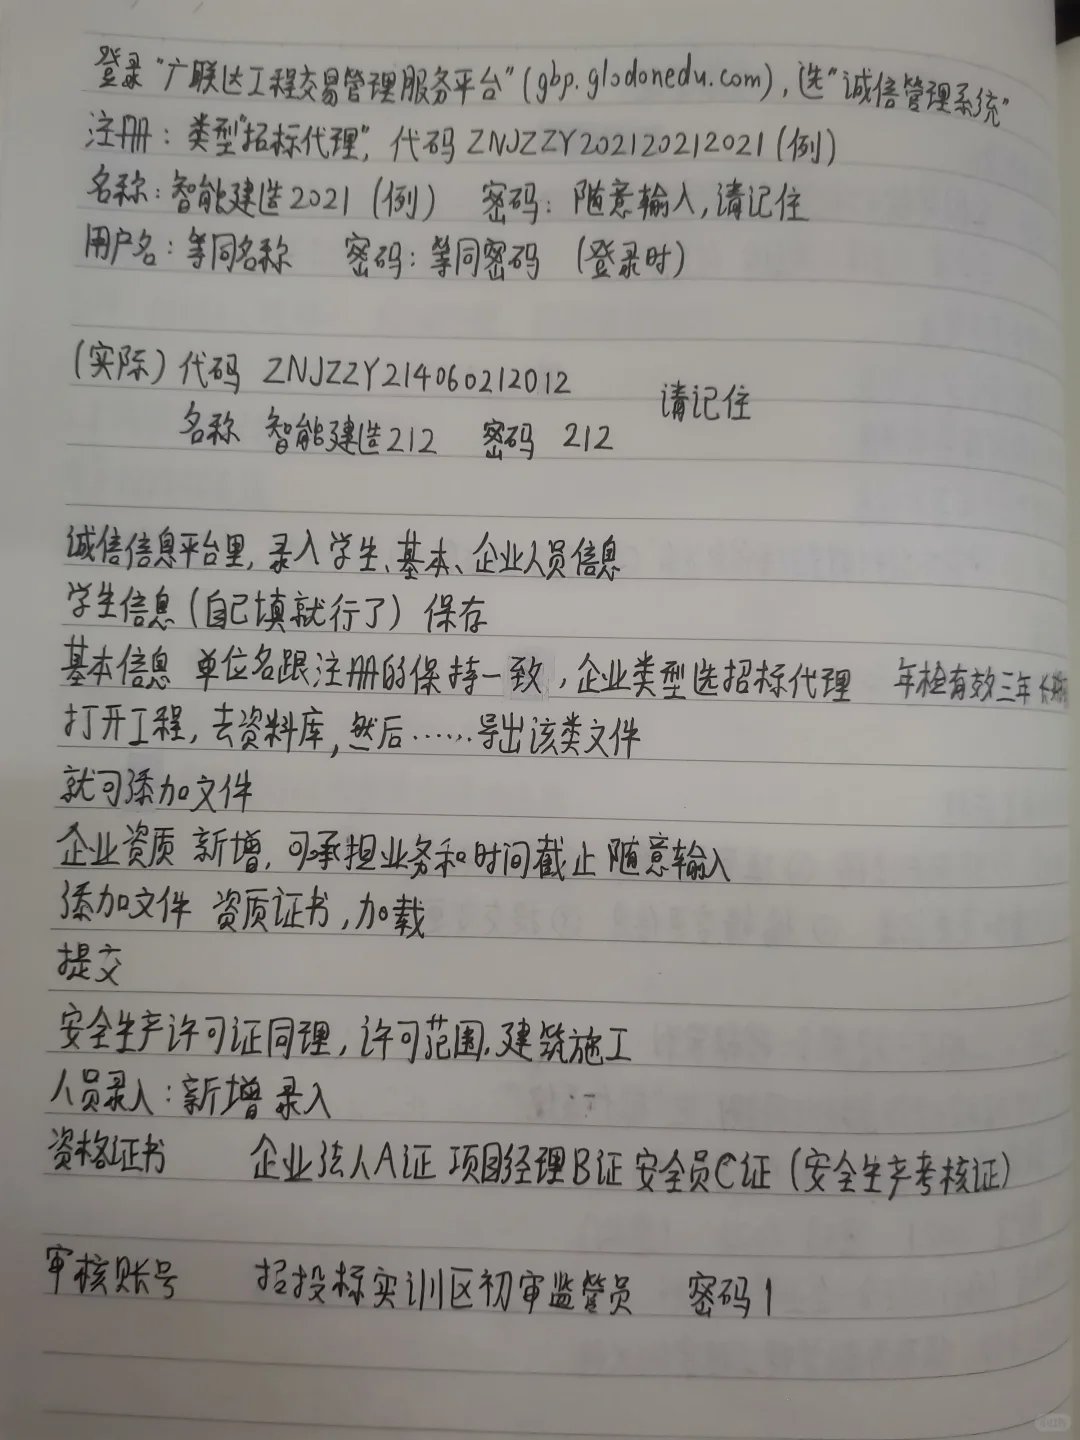 登录“广联达工程交易管理服务平台”(gbp.glodonedu.com),选“诚信管理系统”
注册:类型“招标代理”,代码 ZNJZZY202120212021(例)
名称:智能建造2021(例) 密码:随意输入,请记住
用户名:等同名称 密码:等同密码 (登录时)
(实际)代码 ZNJZZY214060212012 请记住
名称 智能建造212 密码 212
诚信信息平台里,录入学生、基本、企业人员信息
学生信息(自己填就行了)保存
基本信息 单位名跟注册的保持一致,企业类型选招标代理 年检有效三年 长期
打开工程,去资料库,然后……导出该类文件
就可添加文件
企业资质 新增,可承担业务和时间截止 随意输入
添加文件 资质证书,加载
提交
安全生产许可证同理,许可范围,建筑施工
人员录入:新增 录入
资格证书 企业法人A证 项目经理B证 安全员C证(安全生产考核证)
审核账号 招投标实训区初审监管员 密码1